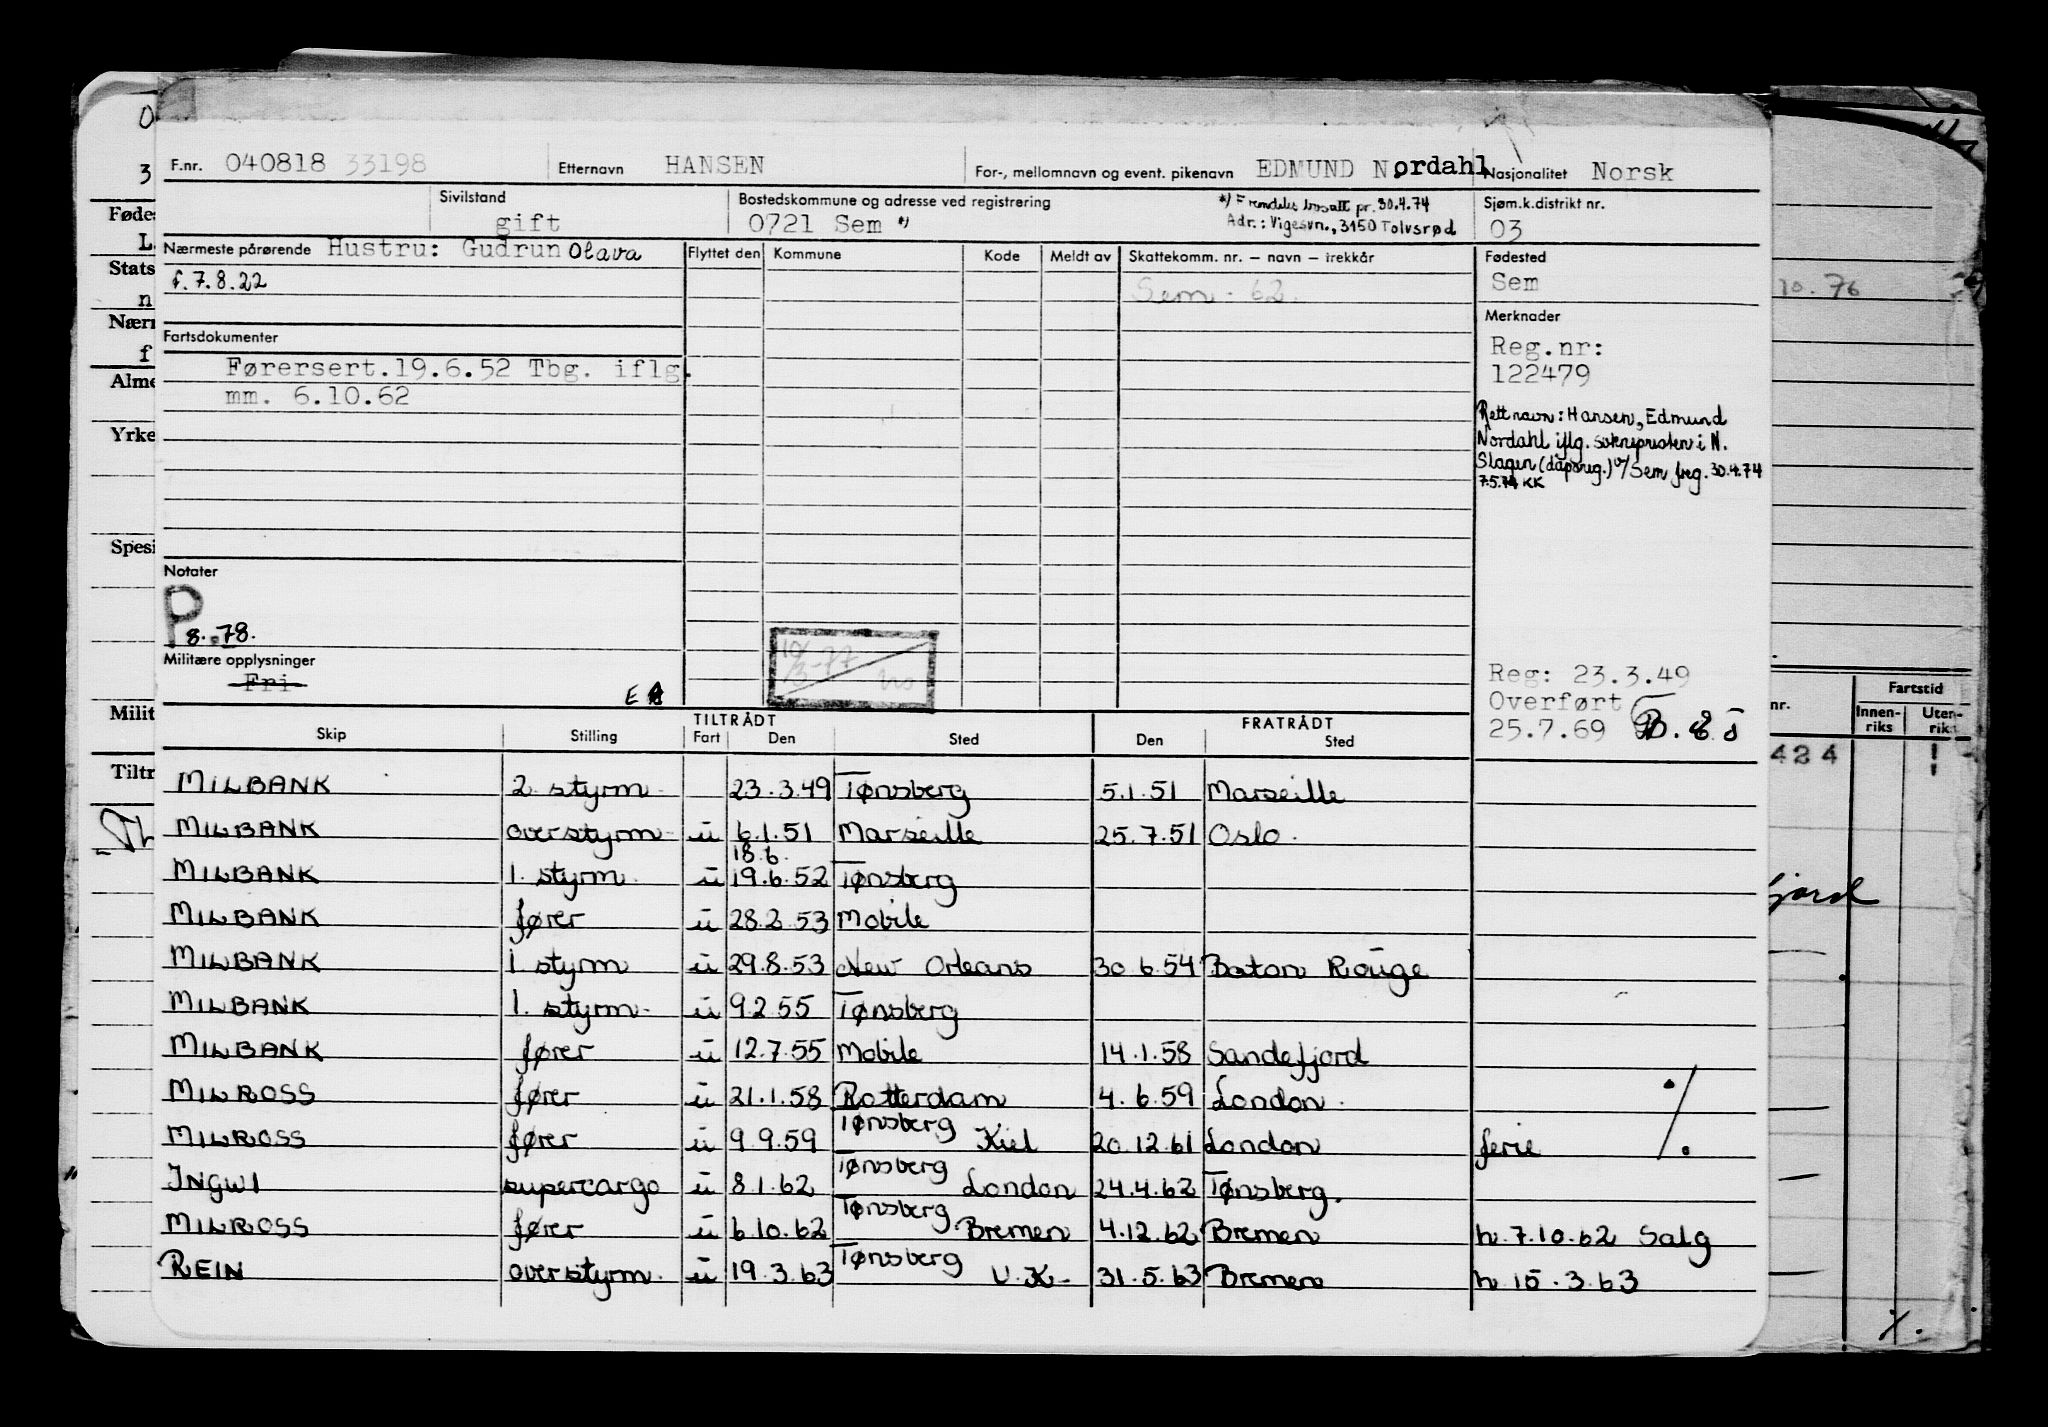 F.nr. 040818 33198 Etternavn HANSEN For-, mellomnavn og event. pikenavn EDMUND Nordahl Nasjonalitet Norsk
Sivilstand gift Bostedskommune og adresse ved registrering 0721 Sem *) *) Fremdeles bosatt pr. 30.4.74 Sjøm.k.distrikt nr.
Adr.: Vigesvn., 3150 Tolvsrød 03
Nærmeste pårørende Hustru: Gudrun Olava Flyttet den Kommune Kode Meldt av Skattekomm. nr. – navn – trekkår Fødested
f. 7.8.22 Sem - 62. Sem
Merknader
Fartsdokumenter
Førersert.19.6.52 Tbg. iflg.
mm. 6.10.62
Reg.nr:
122479
Rett navn: Hansen, Edmund
Nordahl iflg. sokнepresten i N.
Slagen (dåpsreg.) v/Sem freg. 30.4.74
7.5.74 KK
Notater
P 8.78.
10/3-77
Militære opplysninger
Fri
E
Reg: 23.3.49
Overført
25.7.69
Skip Stilling TILTRÅDT Fart Den Sted FRATRÅDT Den Sted
MILBANK 2 styrm. 23.3.49 Tønsberg 5.1.51 Marseille
MILBANK overstyrm u 6.1.51 Marseille 25.7.51 Oslo.
18.6.
MILBANK 1. styrm. u 19.6.52 Tønsberg
MILBANK fører u 28.2.53 Mobile
MILBANK 1 styrm u 29.8.53 New Orleans 30.6.54 Baton Rouge
MILBANK 1. styrm. u 9.2.55 Tønsberg
MILBANK fører u 12.7.55 Mobile 14.1.58 Sandefjord
MILROSS fører u 21.1.58 Rotterdam 4.6.59 London.
MILROSS fører u 9.9.59 Tønsberg Kiel 20.12.61 London ferie ./.
INGWI supercargo u 8.1.62 Tønsberg London 24.4.62 Tønsberg.
MILROSS fører u 6.10.62 Tønsberg Bremen 4.12.62 Bremen h. 7.10.62 Salg
REIN overstyrm. u 19.3.63 Tønsberg U.K. 31.5.63 Bremen h 15.3.63
O
3
Føde
L
Stats
n
Nærr
f
Alme
Yrke
Spesi
Milit
Tiltr
Th
10.76
nr. Fartstid
Innen-riks Uten-riks
424
fjord